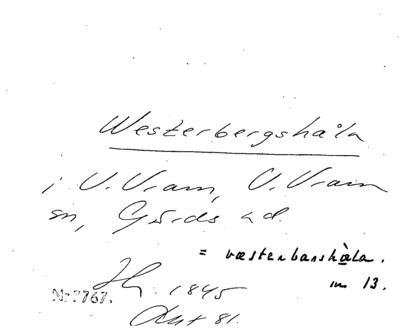 Westerbergshåla
i V. Vram, V. Vram
sn, Gärds hd.
= væstenbarshàla.
m 13.
1845
Nr 7767.
Akt 81.